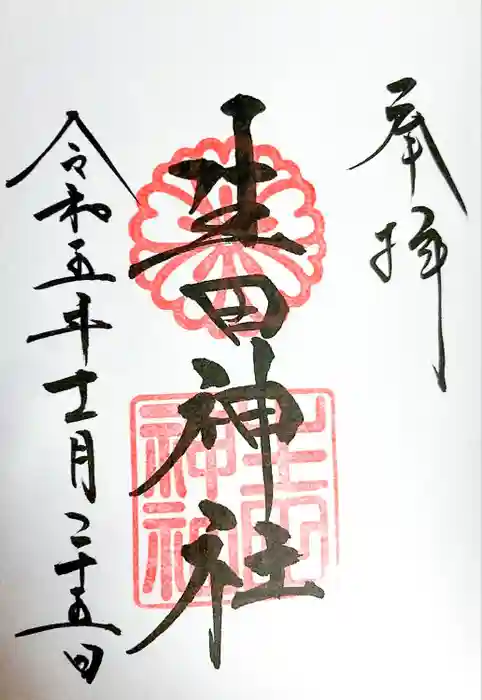 奉拝
生田神社
令和五年十一月二十五日
生田
神社